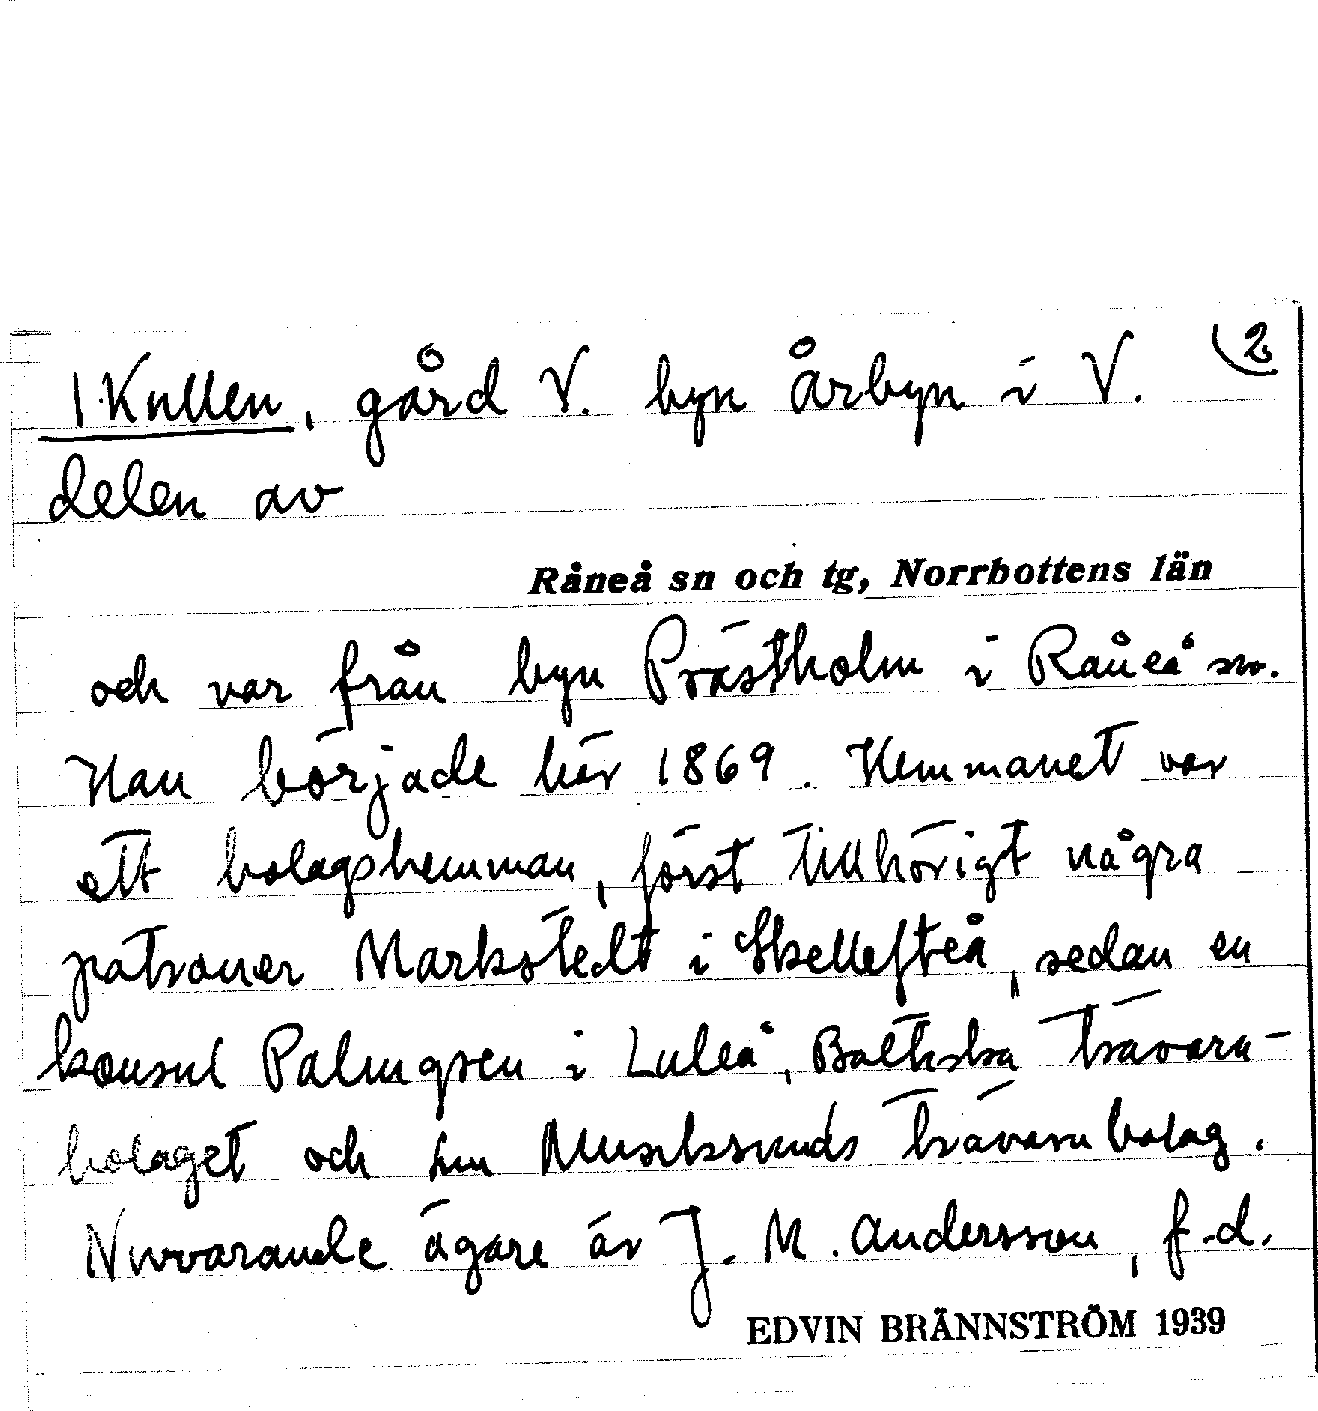 1 Kullen, gård V. byn Årbyn i V. 2
delen av
Råneå sn och tg, Norrbottens län
och var från byn Prästholm i Råneå sn.
Han började här 1869. Hemmanet var
ett bolagshemman, först tillhörigt några
patroner Markstedt i Skellefteå, sedan en
konsul Palmgren i Luleå, Baltiska trävaru-
bolaget och Munksunds trävarubolag.
Nuvarande ägare är J. M. Andersson, f.d.
EDVIN BRÄNNSTRÖM 1939